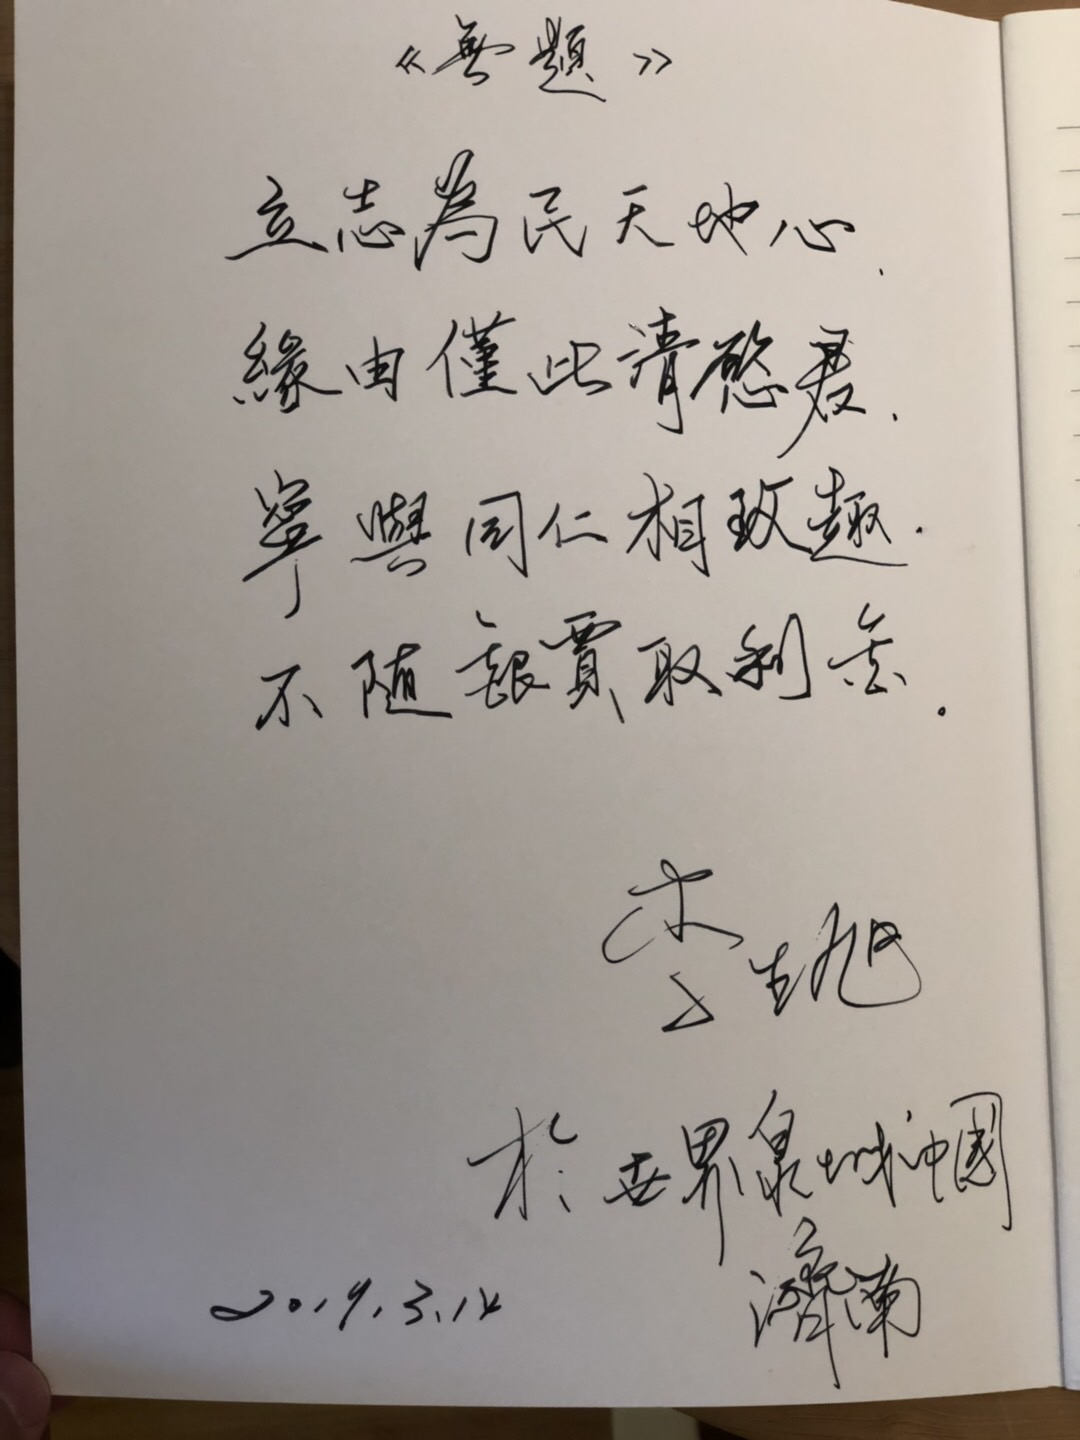 《無題》
立志為民天地心，
緣由僅此請慰君，
寧與同仁相致趣，
不隨銀賈取利金。
李生旭
於世界泉城中國
濟南
2019.3.14